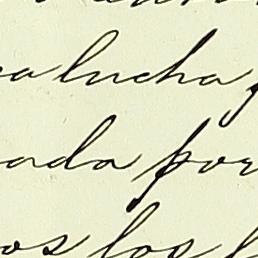 a lucha
ada por
os los